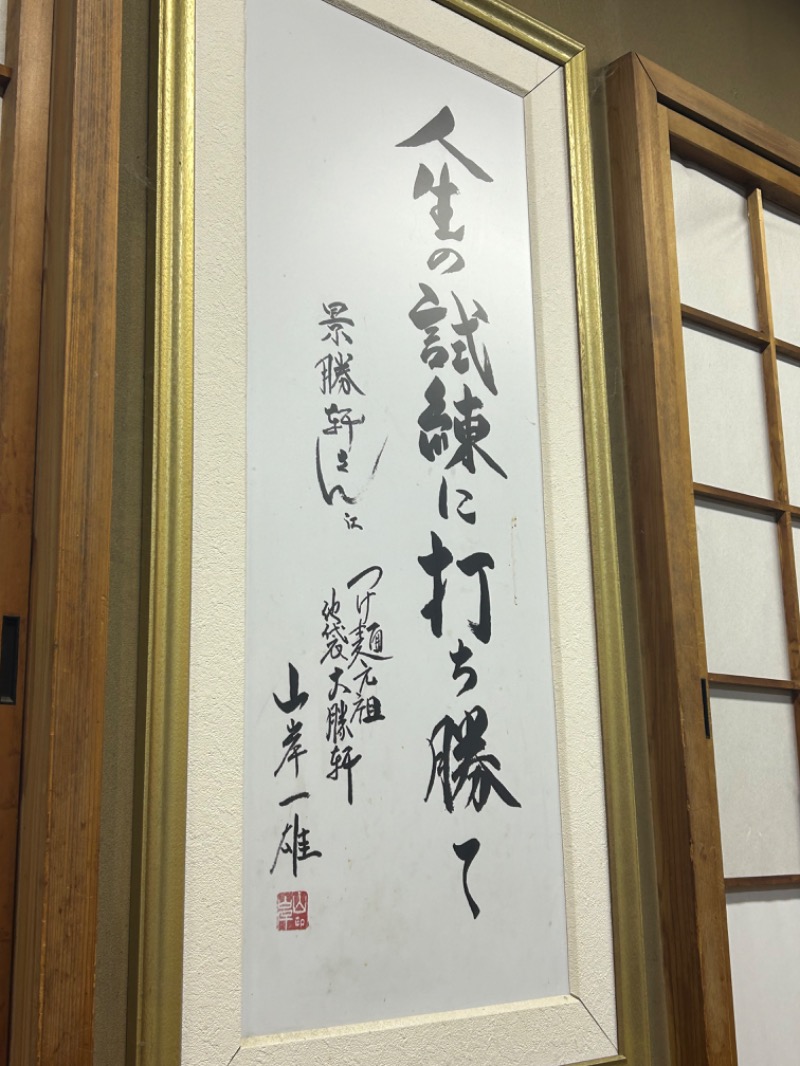 人生の試練に打ち勝て
景勝軒さん江
つけ麺元祖
池袋大勝軒
山岸一雄
山岸印